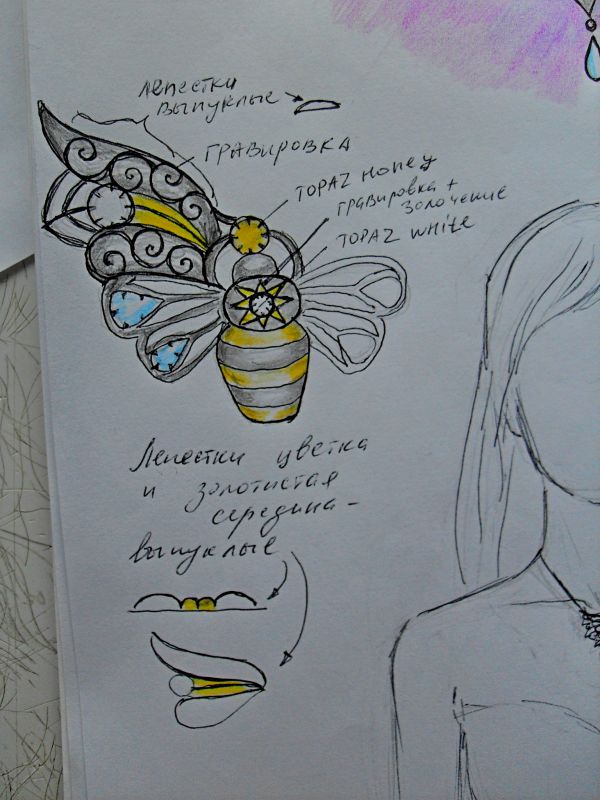 лепестки
выпуклые
гравировка
TOPAZ Honey
гравировка +
золочение
TOPAZ white
Лепестки цветка
и золотистая
середина -
выпуклые